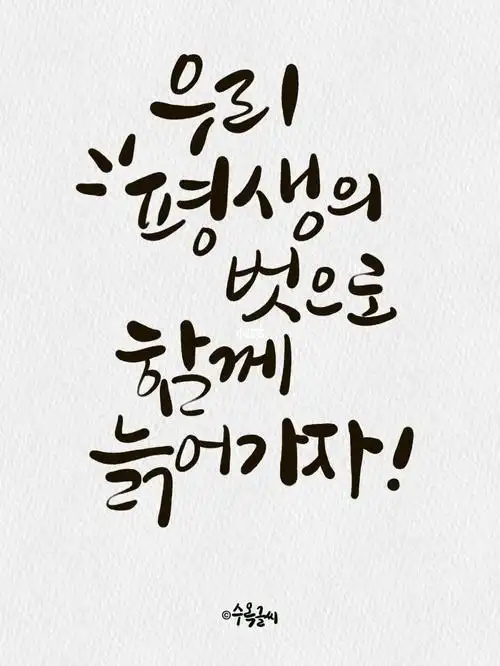 우리
평생의
벗으로
함께
늙어가자!
©수옥글씨